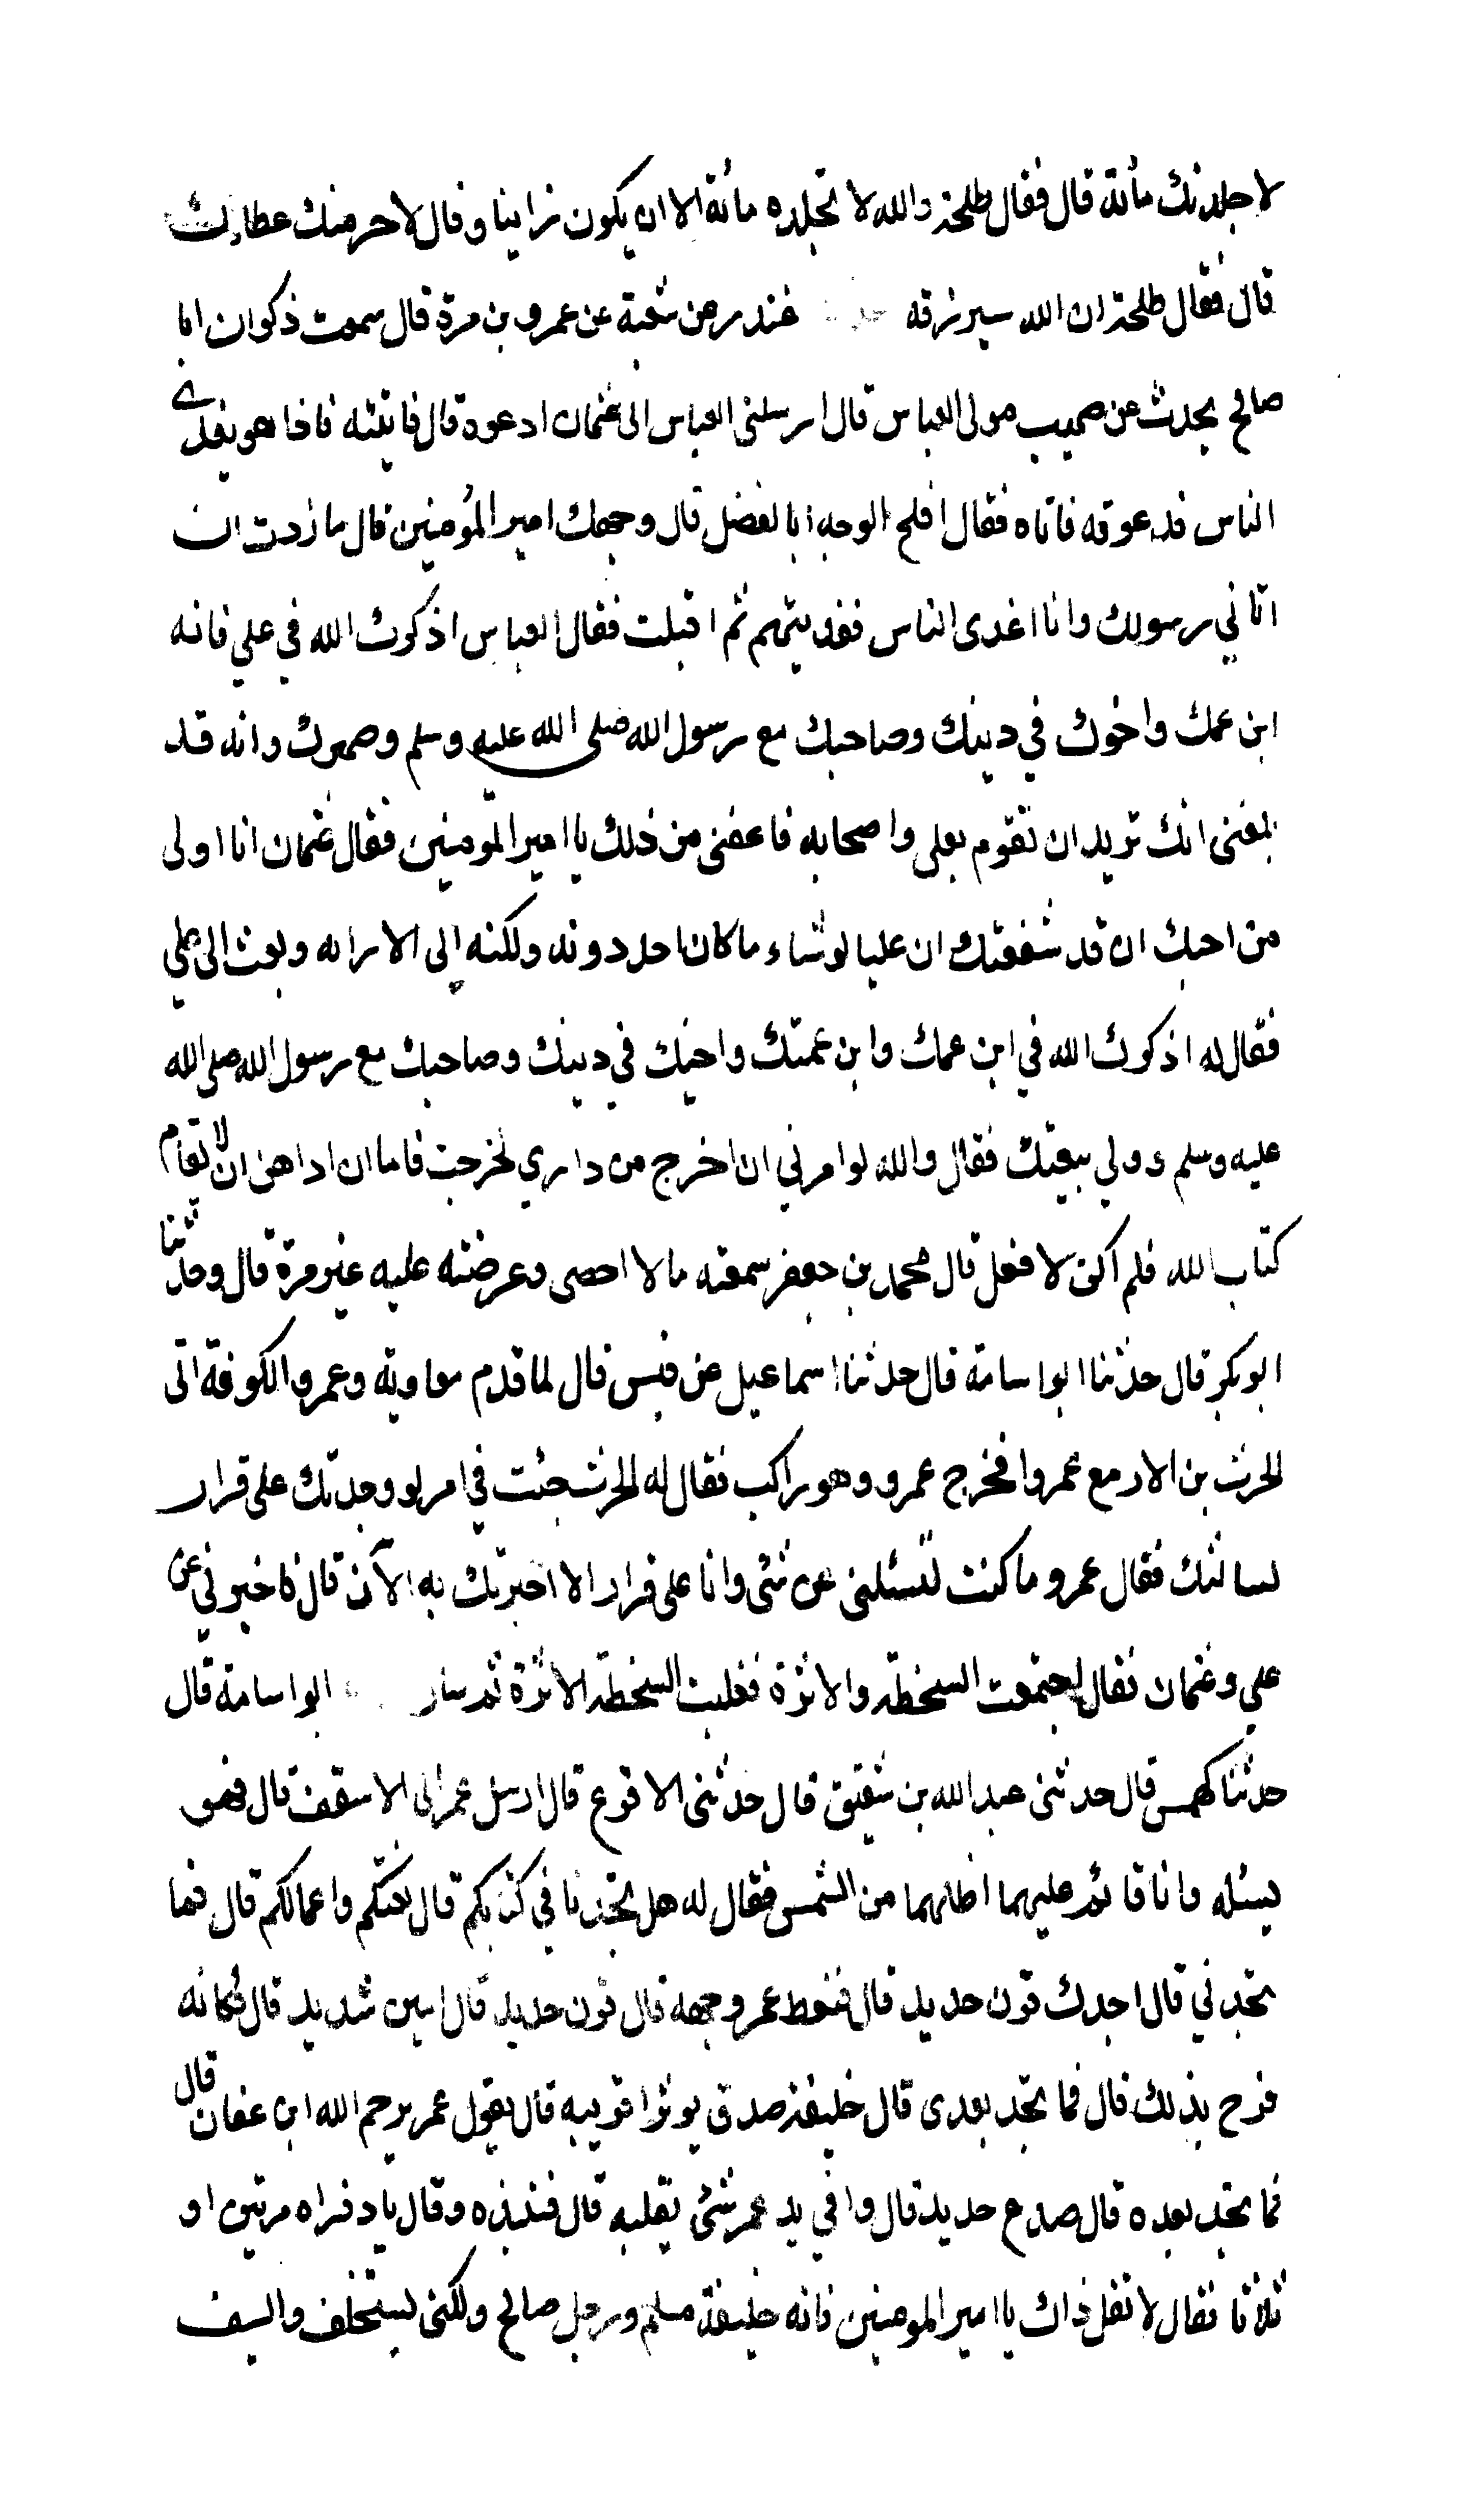 لاجلدنك مائة قال فقال طلحة والله لا تجلده مائة الا ان يكون زانيا وقال لاحرمنك عطاءك
قال فقال طلحة ان الله سيرزقه غندر عن شعبة عن عمرو بن مرة قال سمعت ذكوان ابا
صالح يحدث عن صهيب مولى العباس قال ارسلني العباس الى عثمان ادعوه قال فاتيته فاذا هو يغدي
الناس فدعوته فاتاه فقال افلح الوجه ابا الفضل قال ووجهك امير المؤمنين قال ما زدت ان
اتاني رسولك وانا اغدى الناس فغديتهم ثم اقبلت فقال العباس اذكرك الله في علي فانه
ابن عمك واخوك في دينك وصاحبك مع رسول الله صلى الله عليه وسلم وصهرك وانه قد
بلغني انك تريد ان تقوم بعلي واصحابه فاعفني من ذلك يا امير المومنين فقال عثمان انا اولى
من احبك ان قد شفعتك ان عليا لو شاء ما كان احد دونه ولكنه ابى الا رايه وبعث الى علي
فقال له اذكرك الله في ابن عمك وابن عمتك واخيك في دينك وصاحبك مع رسول الله صلى الله
عليه وسلم وولي بيعتك فقال والله لو امرني ان اخرج من داري لخرجت فاما ان اداهن ان لا يقام
كتاب الله فلم اكن لافعل قال محمد بن جعفر سمعته ما لا احصى وعرضته عليه غير مرة قال وحدثنا
ابو بكر قال حدثنا ابو اسامة قال حدثنا اسماعيل عن قيس قال لما قدم معاوية وعمرو الكوفة اتى
الحرث بن الازمع عمروا فخرج عمرو وهو راكب فقال له الحرث جئت في امر لو وجدتك على قرار
لسالتك فقال عمرو ما كنت لتسئلني عن شئ وانا على قرار الا اخبرتك به الآن قال فاخبرني عن
علي وعثمان فقال اجتمعت السخطة والاثرة فغلبت السخطة الاثرة ثم سار ابو اسامة قال
حدثنا كهمس قال حدثنى عبد الله بن شقيق قال حدثنى الاقرع قال ارسل عمر الى الاسقف قال فهو
يسئله وانا قائم عليهما اظلهما من الشمس فقال له هل تجدنا في كتابكم قال نعتكم واعمالكم قال فما
تجدني قال اجدك قرن حديد قال فنقط عمر وجهه قال قرن حديد قال امين شديد قال فكانه
فرح بذلك قال فما تجد بعدى قال خليفة صدق يوثر اقربيه قال يقول عمر يرحم الله ابن عفان قال
فما تجد بعده قال صدع حديد قال وفي يد عمر شئ يقلبه قال فنبذه وقال يا دفراه مرتين او
ثلاثا فقال لا تقل ذاك يا امير المومنين فانه خليفة مسلم ورجل صالح ولكنى يستخلف والسيف